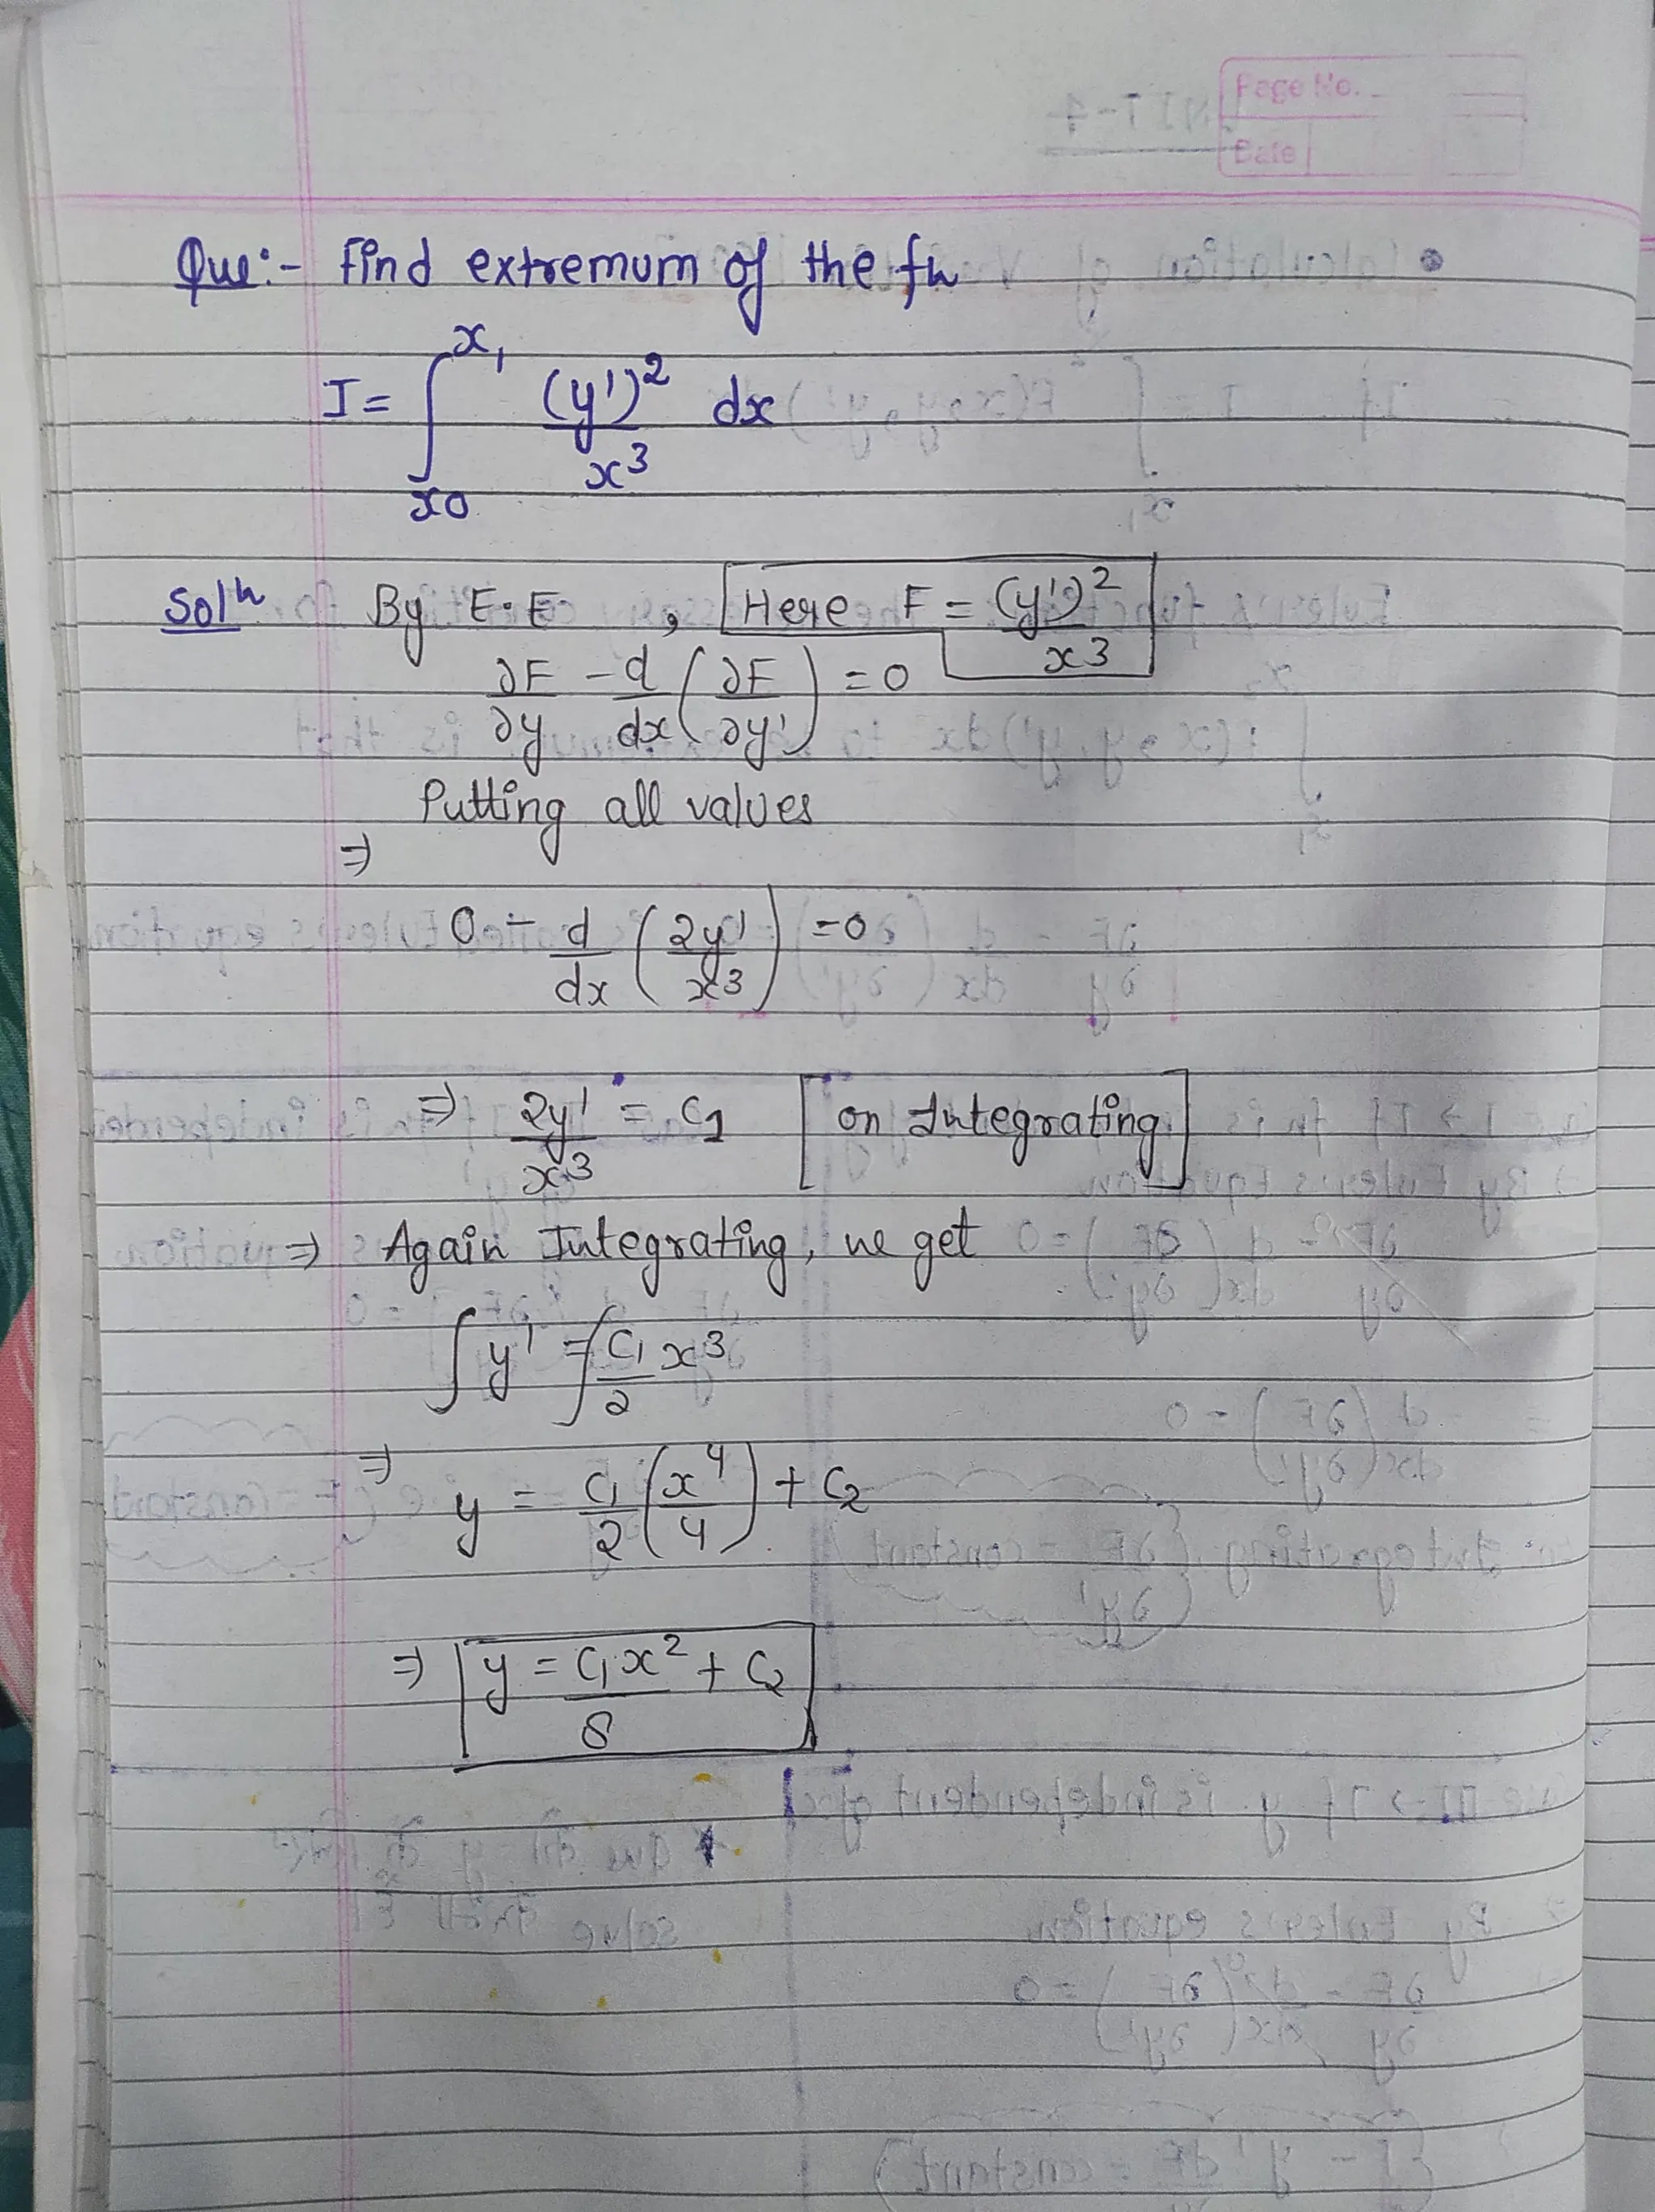 Page No.
Date
Que:- Find extremum of the fn
I = ∫_{x0}^{x₁} (y')²/x³ dx
Solⁿ By E.E , Here F = (y')²/x³
∂F/∂y - d/dx (∂F/∂y') = 0
Putting all values
⇒
0 - d/dx (2y'/x³) = 0
⇒ 2y'/x³ = C1 [on Integrating]
⇒ Again Integrating, we get
∫y' = ∫C₁/2 x³
⇒
y = C₁/2 (x⁴/4) + C₂
⇒ y = C₁x²/8 + C₂